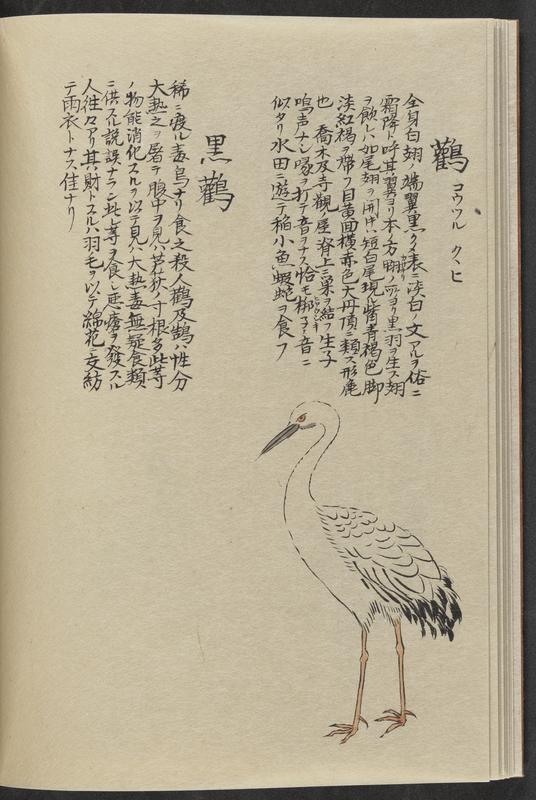 鸛 コウツル クヽヒ
全身白翅ノ端翼黒クメ表ニ淡白ノ文アルヲ俗ニ
霜降ト呼其翼ヨリ本ノ方翅ノ所ヨリ黒羽ヲ生ス翅
ヲ飲レハ如尾翅ヲ開けハ短白尾現ル觜青褐色脚
淡紅褐ヲ帯フ目黄囬横赤色大丹頂ニ類ス形鹿
也 喬木及寺觀ノ屋脊上ニ巣ヲ結フ生子
鳴声ナシ喙ヲ打テ音ヲナス恰モ梆子ノ音ニ
似タリ水田ニ遊テ稲小魚蝦蛇ヲ食フ
黒鸛
稀ニ渡ル毒鳥ナリ食之殺人鸛及鵠ハ性分
大熱之ヲ屠テ腹中ヲ見ハ芦荻ノ寸根多此等
ノ物能消化スルヲ以テ見ハ大熱毒無疑食類
ニ供スル説誤ナラン此等ヲ食シ悪瘡ヲ發スル
人徃々アリ其財トスルハ羽毛ヲ以テ綿花ニ交紡
テ雨衣トナス佳ナリ